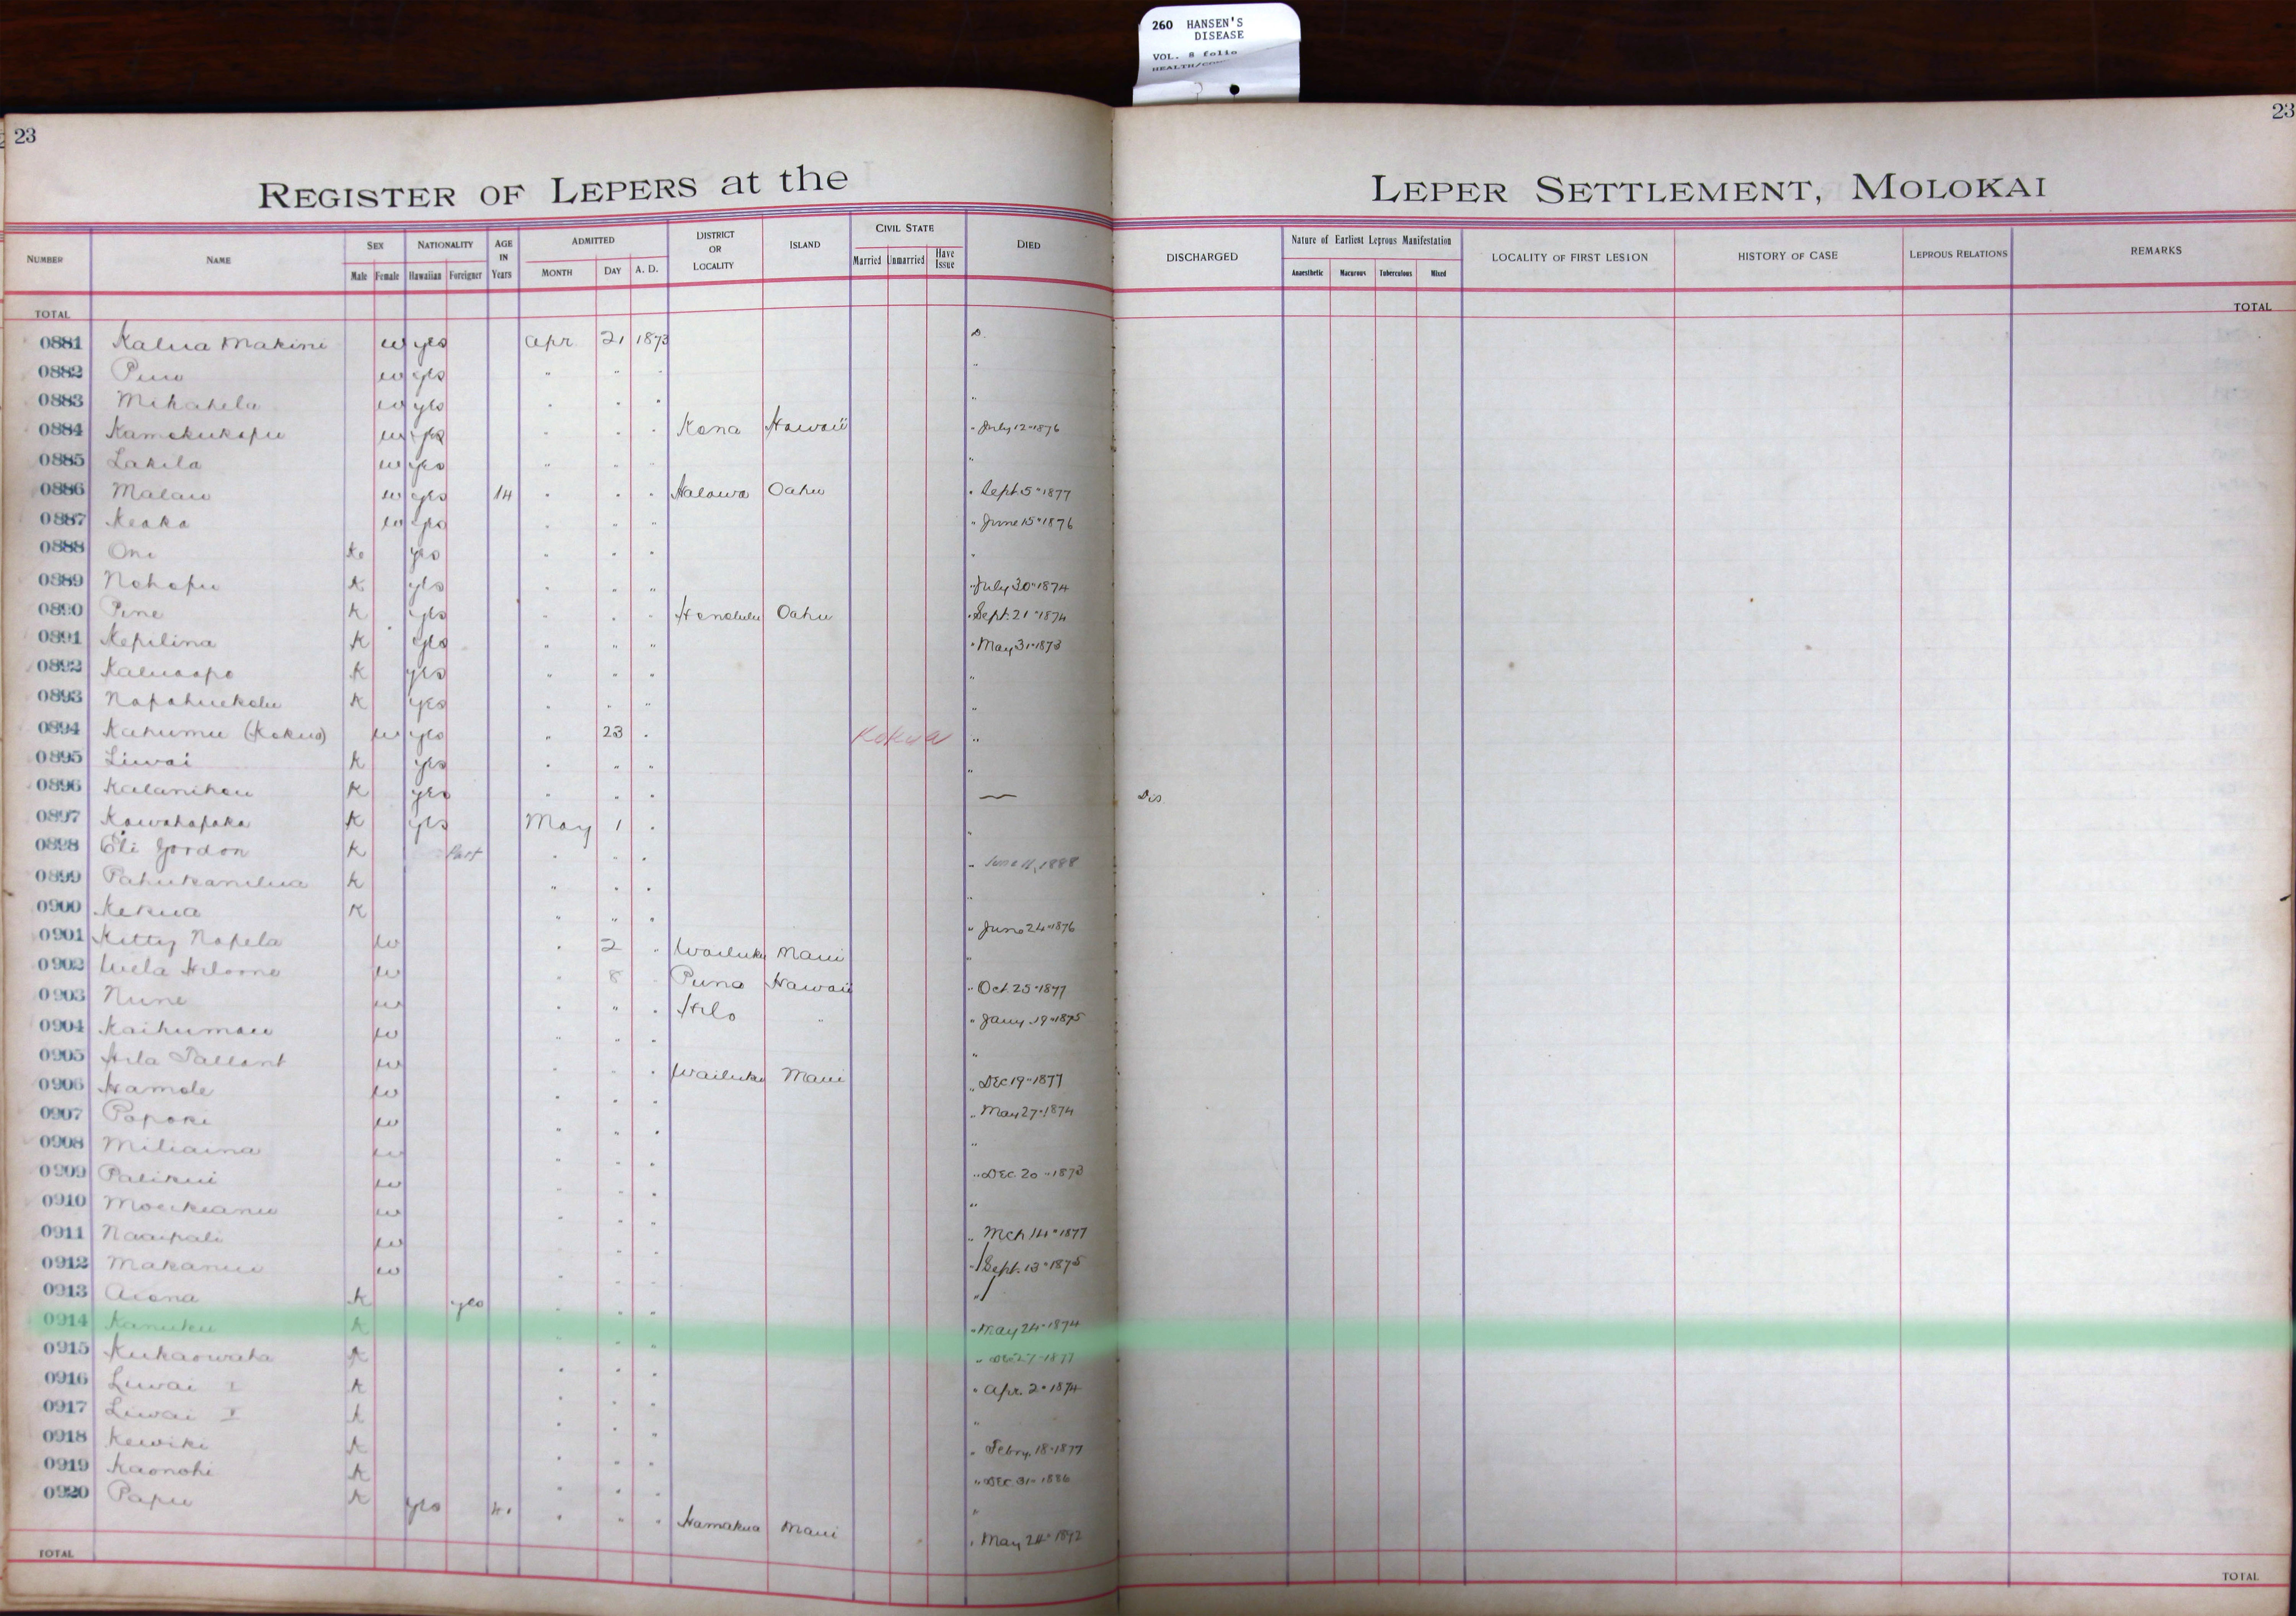 260 HANSEN'S
DISEASE
VOL. 8 folio
23
23
REGISTER OF LEPERS at the LEPER SETTLEMENT, MOLOKAI
NUMBER NAME SEX Male Female NATIONALITY Hawaiian Foreigner AGE IN Years ADMITTED MONTH DAY A. D. DISTRICT OR LOCALITY ISLAND CIVIL STATE Married Unmarried Have Issue DIED DISCHARGED Nature of Earliest Leprous Manifestation Anaesthetic Macurous Tuberculous Mixed LOCALITY OF FIRST LESION HISTORY OF CASE LEPROUS RELATIONS REMARKS
TOTAL TOTAL
0881 Kalua Makini w yes Apr 21 1873 D.
0882 w yes " " " "
0883 Mikahela w yes " " " "
0884 Kamokukapu w yes " " " Kona Hawaii " July 12" 1876
0885 Lakila w yes " " " "
0886 Malau w yes 14 " " " Halawa Oahu " Sept. 5" 1877
0887 Keaka w yes " " " " June 15" 1876
0888 Oni K yes " " " "
0889 Nohopu K yes " " " " July 30" 1874
0890 Pine K yes " " " Honolulu Oahu " Sept. 21" 1874
0891 Kepilina K yes " " " " May 31" 1873
0892 K yes " " " "
0893 Napahuekolu K yes " " " "
0894 Kahumu (Kokua) w yes " 23 " Kokua "
0895 Liwai K yes " " " "
0896 Kalanihou K yes " " " — Dis
0897 Kawahapaka K yes May 1 " "
0898 Eli Gordon K Part " " " " June 11, 1888
0899 Pahukanilua K " " " "
0900 Kekua K " " " " June 24" 1876
0901 Kitty Napela w " 2 " Wailuku Maui "
0902 w " 8 " Puna Hawaii " Oct. 25" 1877
0903 Nune w " " " Hilo " " Jany. 19" 1875
0904 w " " " "
0905 Hila Tallant w " " " Wailuku Maui " Dec 19" 1877
0906 Hamole w " " " " May 27" 1874
0907 Papoki w " " " "
0908 Miliaina w " " " " Dec. 20" 1873
0909 Palikui w " " " "
0910 w " " " " Mch 14" 1877
0911 Naaipali w " " " " Sept. 13" 1875
0912 w " " " "
0913 Aiona K yes " " " " May 24" 1874
0914 Kanuku K " " " " Dec. 27" 1877
0915 Kukaowaha K " " " " Apr. 2" 1874
0916 Liwai I K " " " "
0917 Liwai K " " " " Febry. 18" 1877
0918 Kewiki K " " " " Dec. 31" 1886
0919 Kaonohi K " " " "
0920 Papu K yes " " " Hamakua Maui " May 24" 1892
TOTAL TOTAL